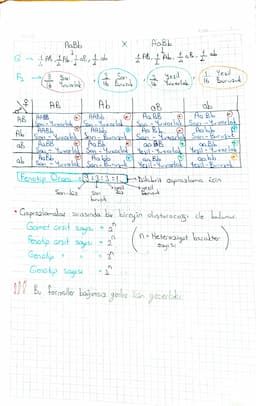 AaBb x AaBb
G → 1/4 AB, 1/4 Ab, 1/4 aB, 1/4 ab 1/4 AB, 1/4 Ab, 1/4 aB, 1/4 ab
F₁ → 9/16 Sarı Yuvarlak, 3/16 Sarı Buruşuk, 3/16 Yeşil Yuvarlak, 1/16 Yeşil Buruşuk
AB Ab aB ab
AB AABB AABb AaBB AaBb
Sarı - Yuvarlak Sarı - Yuvarlak Sarı - Yuvarlak Sarı - Yuvarlak
Ab AABb AAbb AaBb Aabb
Sarı - Yuvarlak Sarı - Buruşuk Sarı - Yuvarlak Sarı - Buruşuk
aB AaBB AaBb aaBB aaBb
Sarı - Yuvarlak Sarı - Yuvarlak Yeşil - Yuvarlak Yeşil - Yuvarlak
ab AaBb Aabb aaBb aabb
Sarı - Yuvarlak Sarı - Buruşuk Yeşil - Yuvarlak Yeşil - Buruşuk
Fenotip Oranı = 9:3:3:1 → Dihibrit çaprazlama için
Sarı Sarı buruşuk yeşil yeşil buruşuk
• Çaprazlamalar sırasında bir bireyin oluşturacağı de bulunur.
Gamet çeşit sayısı = 2ⁿ
Fenotip çeşit sayısı = 2ⁿ
Genotip " " = 3ⁿ
Genotip sayısı = 4ⁿ
(n = Heterozigot karakter sayısı)
!!! Bu formüller bağımsız genler için geçerlidir.